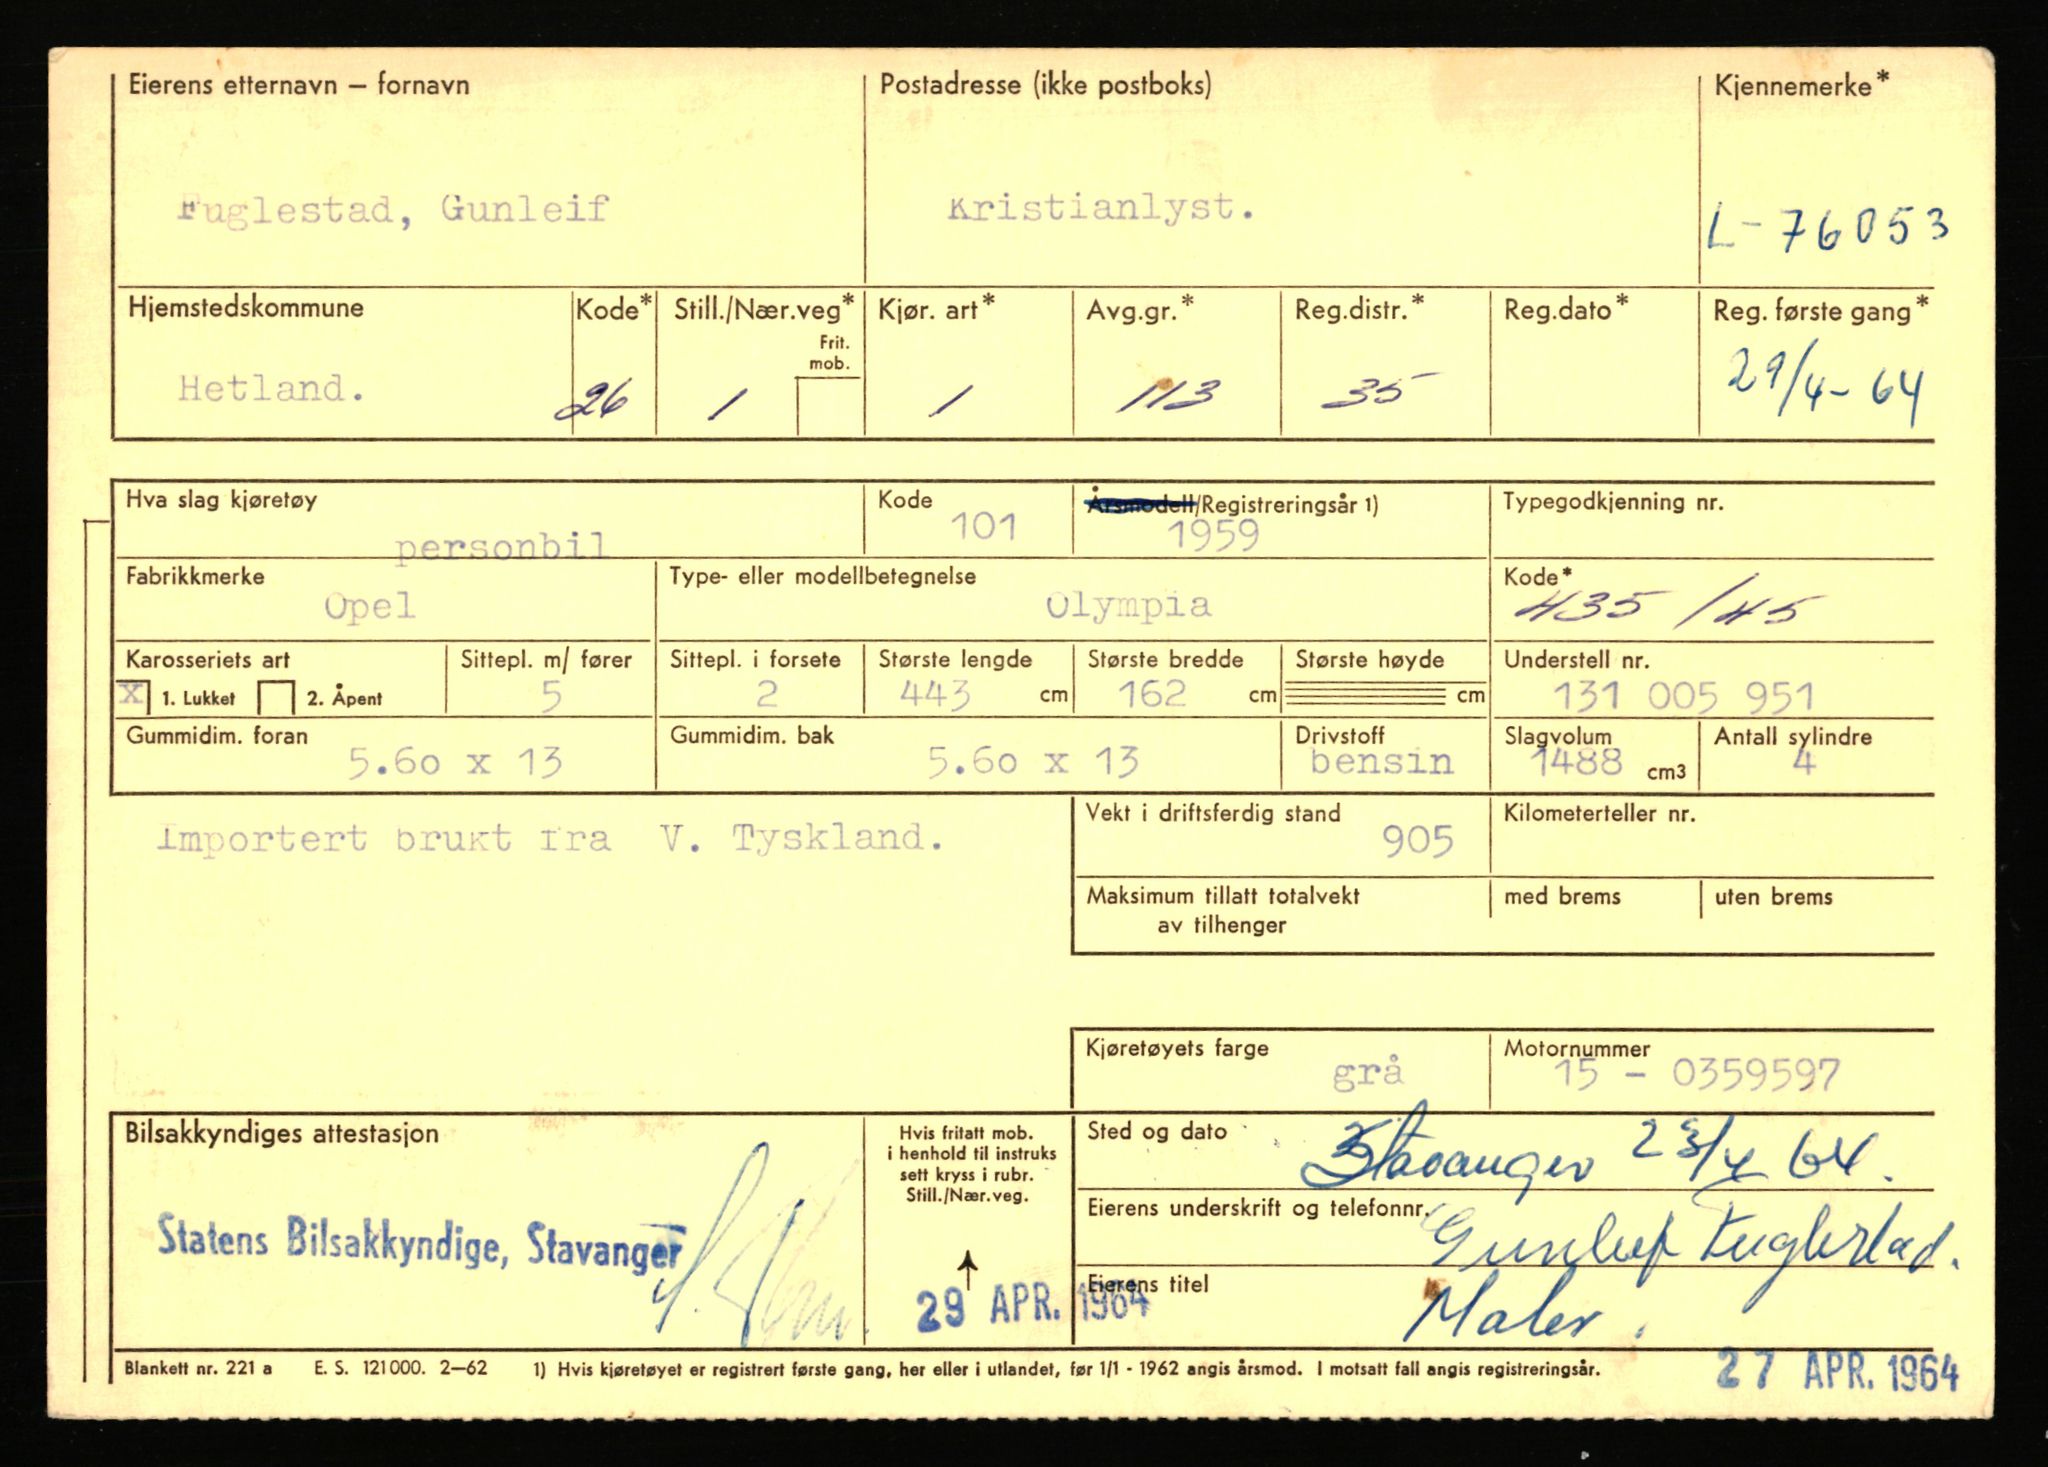 Eierens etternavn – fornavn Postadresse (ikke postboks) Kjennemerke*
Fuglestad, Gunleif Kristianlyst. L-76053
Hjemstedskommune Kode* Still./Nær.veg* Kjør. art* Avg.gr.* Reg.distr.* Reg.dato* Reg. første gang*
Frit.
mob.
Hetland. 26 1 1 113 35 29/4-64
Hva slag kjøretøy Kode Årsmodell/Registreringsår 1) Typegodkjenning nr.
personbil 101 1959
Fabrikkmerke Type- eller modellbetegnelse Kode*
Opel Olympia 435/45
Karosseriets art Sittepl. m/ fører Sittepl. i forsete Største lengde Største bredde Største høyde Understell nr.
X 1. Lukket 2. Åpent 5 2 443 cm 162 cm cm 131 005 951
Gummidim. foran Gummidim. bak Drivstoff Slagvolum Antall sylindre
5.60 x 13 5.60 x 13 bensin 1488 cm3 4
Importert brukt fra V. Tyskland.
Vekt i driftsferdig stand Kilometerteller nr.
905
Maksimum tillatt totalvekt med brems uten brems
av tilhenger
Kjøretøyets farge Motornummer
grå 15 - 0359597
Bilsakkyndiges attestasjon
Statens Bilsakkyndige, Stavanger
Hvis fritatt mob.
i henhold til instruks
sett kryss i rubr.
Still./Nær.veg.
29 APR. 1964
Sted og dato
Stavanger 23/4 64.
Eierens underskrift og telefonnr.
Gunleif Fuglestad.
Eierens titel
Maler.
Blankett nr. 221 a E. S. 121000. 2–62 1) Hvis kjøretøyet er registrert første gang, her eller i utlandet, før 1/1 - 1962 angis årsmod. I motsatt fall angis registreringsår.
27 APR. 1964